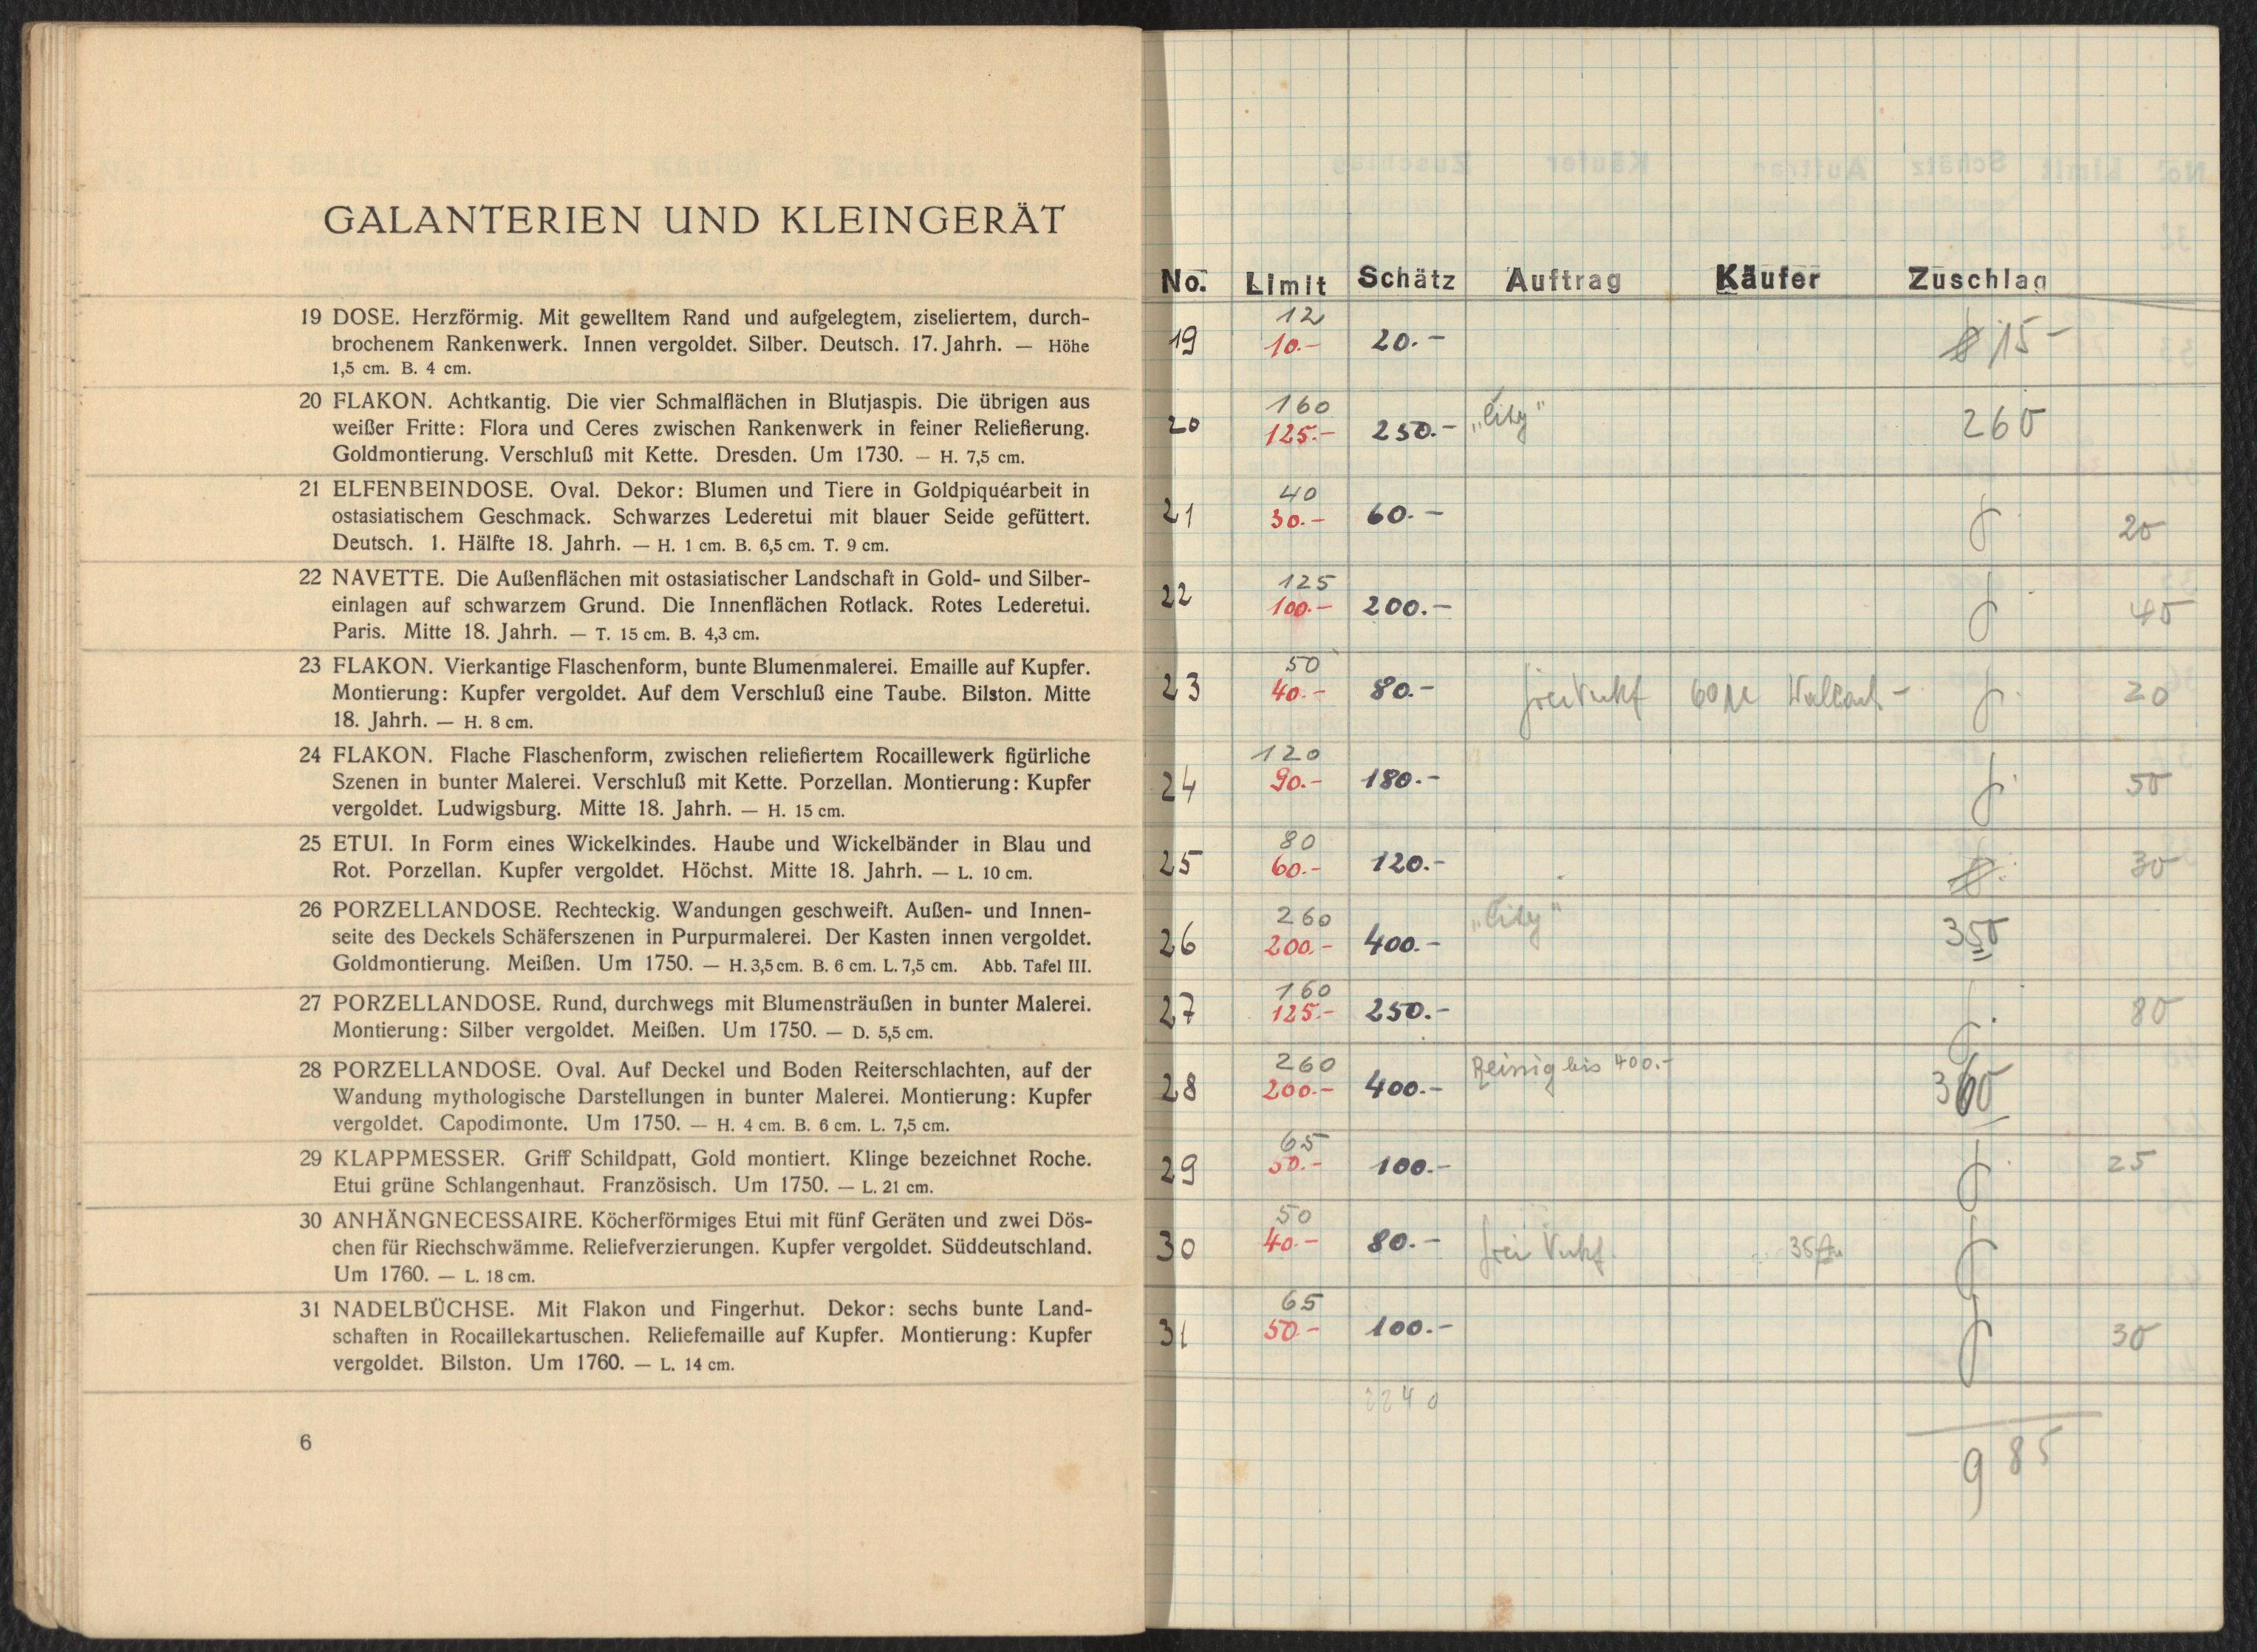 GALANTERIEN UND KLEINGERÄT
19 DOSE. Herzförmig. Mit gewelltem Rand und aufgelegtem, ziseliertem, durch-
brochenem Rankenwerk. Innen vergoldet. Silber. Deutsch. 17. Jahrh. — Höhe
1,5 cm. B. 4 cm.
20 FLAKON. Achtkantig. Die vier Schmalflächen in Blutjaspis. Die übrigen aus
weißer Fritte: Flora und Ceres zwischen Rankenwerk in feiner Reliefierung.
Goldmontierung. Verschluß mit Kette. Dresden. Um 1730. — H. 7,5 cm.
21 ELFENBEINDOSE. Oval. Dekor: Blumen und Tiere in Goldpiquéarbeit in
ostasiatischem Geschmack. Schwarzes Lederetui mit blauer Seide gefüttert.
Deutsch. 1. Hälfte 18. Jahrh. — H. 1 cm. B. 6,5 cm. T. 9 cm.
22 NAVETTE. Die Außenflächen mit ostasiatischer Landschaft in Gold- und Silber-
einlagen auf schwarzem Grund. Die Innenflächen Rotlack. Rotes Lederetui.
Paris. Mitte 18. Jahrh. — T. 15 cm. B. 4,3 cm.
23 FLAKON. Vierkantige Flaschenform, bunte Blumenmalerei. Emaille auf Kupfer.
Montierung: Kupfer vergoldet. Auf dem Verschluß eine Taube. Bilston. Mitte
18. Jahrh. — H. 8 cm.
24 FLAKON. Flache Flaschenform, zwischen reliefiertem Rocaillewerk figürliche
Szenen in bunter Malerei. Verschluß mit Kette. Porzellan. Montierung: Kupfer
vergoldet. Ludwigsburg. Mitte 18. Jahrh. — H. 15 cm.
25 ETUI. In Form eines Wickelkindes. Haube und Wickelbänder in Blau und
Rot. Porzellan. Kupfer vergoldet. Höchst. Mitte 18. Jahrh. — L. 10 cm.
26 PORZELLANDOSE. Rechteckig. Wandungen geschweift. Außen- und Innen-
seite des Deckels Schäferszenen in Purpurmalerei. Der Kasten innen vergoldet.
Goldmontierung. Meißen. Um 1750. — H. 3,5 cm. B. 6 cm. L. 7,5 cm. Abb. Tafel III.
27 PORZELLANDOSE. Rund, durchwegs mit Blumensträußen in bunter Malerei.
Montierung: Silber vergoldet. Meißen. Um 1750. — D. 5,5 cm.
28 PORZELLANDOSE. Oval. Auf Deckel und Boden Reiterschlachten, auf der
Wandung mythologische Darstellungen in bunter Malerei. Montierung: Kupfer
vergoldet. Capodimonte. Um 1750. — H. 4 cm. B. 6 cm. L. 7,5 cm.
29 KLAPPMESSER. Griff Schildpatt, Gold montiert. Klinge bezeichnet Roche.
Etui grüne Schlangenhaut. Französisch. Um 1750. — L. 21 cm.
30 ANHÄNGNECESSAIRE. Köcherförmiges Etui mit fünf Geräten und zwei Dös-
chen für Riechschwämme. Reliefverzierungen. Kupfer vergoldet. Süddeutschland.
Um 1760. — L. 18 cm.
31 NADELBÜCHSE. Mit Flakon und Fingerhut. Dekor: sechs bunte Land-
schaften in Rocaillekartuschen. Reliefemaille auf Kupfer. Montierung: Kupfer
vergoldet. Bilston. Um 1760. — L. 14 cm.
6
No. Limit Schätz Auftrag Käufer Zuschlag
12
19 10.- 20.- 15-
160
20 125.- 250.- 260
40
21 30.- 60.- 20
125
22 100.- 200.- 40
50
23 40.- 80.- 60 20
120
24 90.- 180.- 50
80
25 60.- 120.- 30
260
26 200.- 400.- 350
160
27 125.- 250.- 80
260 bis 400.-
28 200.- 400.- 360
65
29 50.- 100.- 25
50
30 40.- 80.- frei 35
65
31 50.- 100.- 30
2240
985